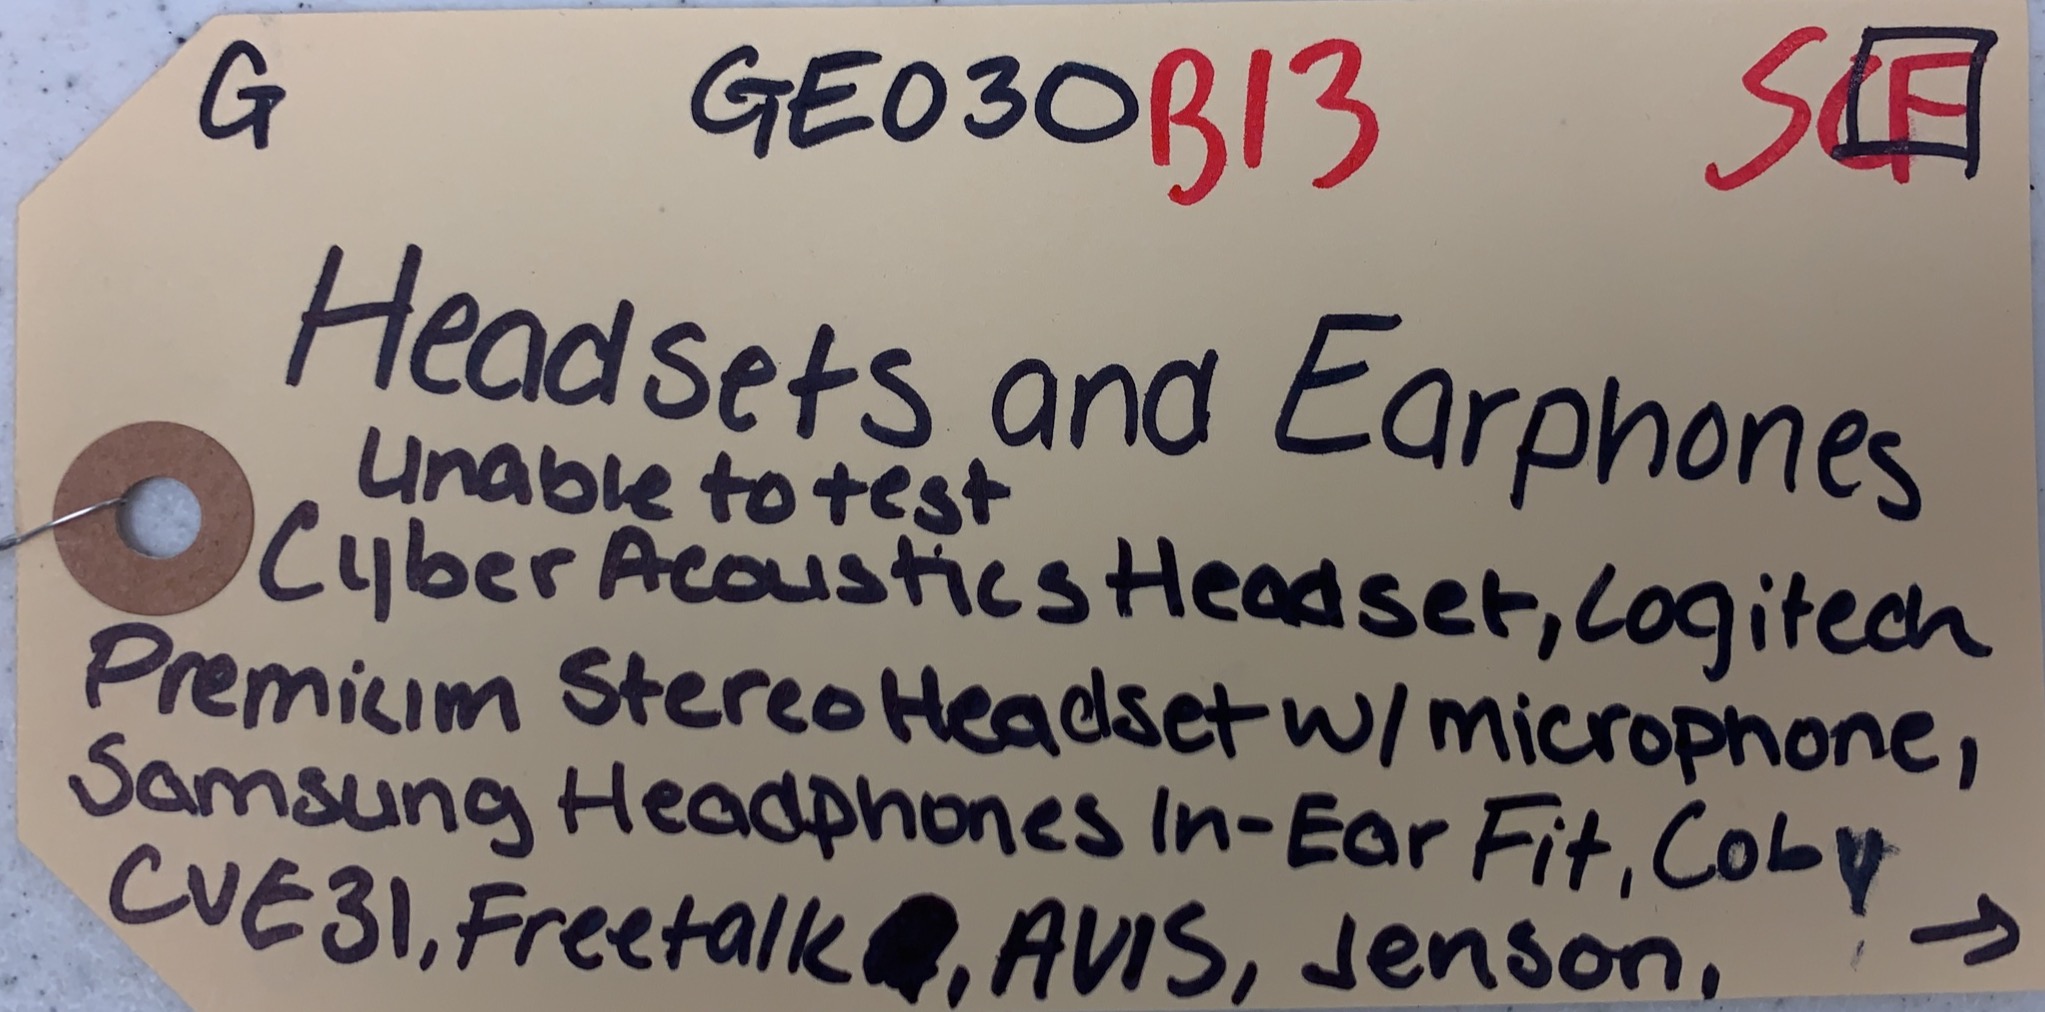 G GE030 B13 SCF
Headsets and Earphones
unable to test
Cyber Acoustics Headset, Logitech
Premium Stereo Headset w/ microphone,
Samsung Headphones In-Ear Fit, Coby
CVE31, Freetalk, AVIS, Jenson, →